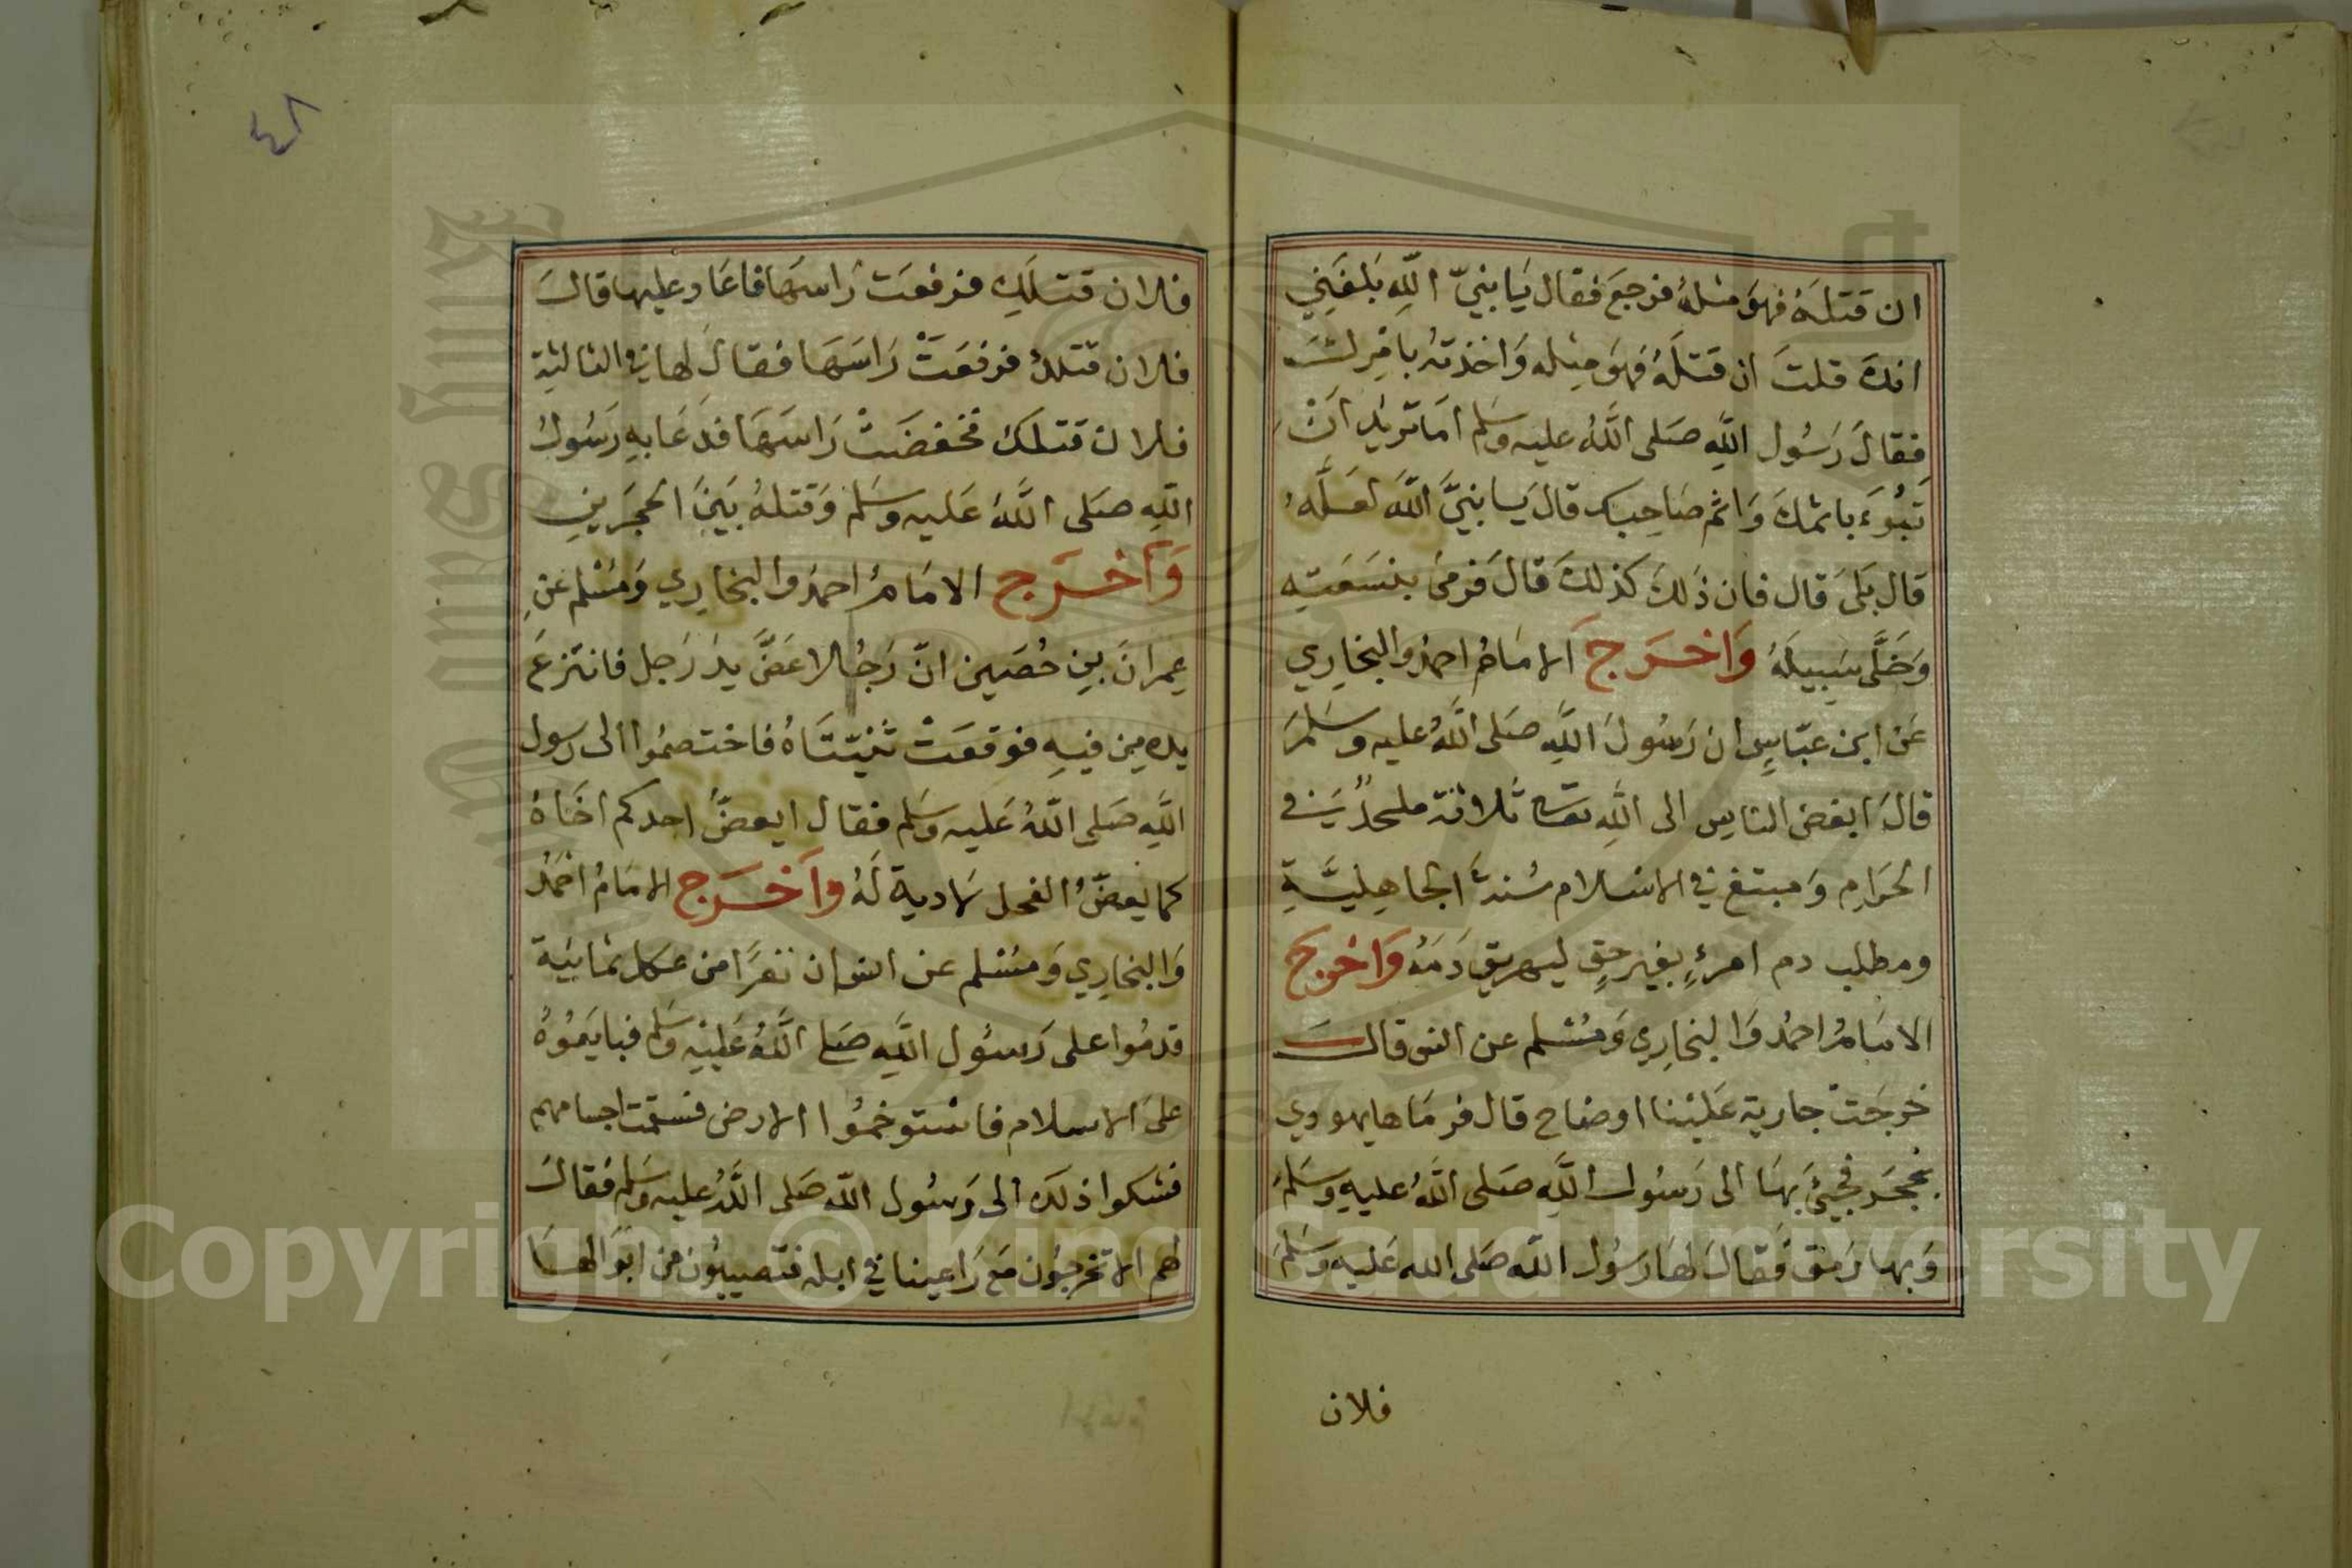 ان قَتَلَهُ فهوَ مثلهُ فرجعَ فقال يَا بنيّ اللهِ بَلغَنِي
انك قلتَ ان قَتَلَهُ فهوَ مِثله وَاخذتهُ بامْرِكَ
فقالَ رَسُول اللهِ صَلى اللهُ عليه وسَلم امَا تريدُ انْ
تَبُوءَ باثمكَ وَاثم صَاحِبك قالَ يَا بنيَّ اللهَ لعَلَّهُ
قَال بَلَى قال فان ذَلكَ كذلكَ قَالَ فَرمىَ بنسَعَتِهِ
وَخَلَّى سَبِيلَهُ وَاخرَجَ الامَامُ احمدُ والبخَارِي
عَن ابن عبّاسٍ ان رَسُولَ اللهِ صَلى اللهُ عليه وسَلمَ
قالَ ابغض الناس الى اللهِ تعالى ثلاثة ملحدٌ في
الحَرَامِ وَمبتغ في الاسلام سُنةَ الجَاهِليَّةِ
ومطلب دم امرءٍ بغير حقٍ ليهريق دَمَهُ وَاخرجَ
الامَامُ احمُد وَالبخارِي وَمُسْلم عن انس قالـَ
خرجَتْ جارية عَليْنا اوضاح قال فرمَاها يهودي
بحجَر فجيئَ بهَا الى رَسُول اللهِ صَلى اللهُ عليهِ وسَلمَ
وَبها رَمَق فَقَالَ لهَا رَسُول الله صَلى الله عَليه وسَلمَ
فلان
٤٨
فلان قتلكِ فرفعَت رَاسَهَا فاعَاد عليها قالَ
فلان قتلكُ فرفعَتْ رَاسَهَا فقالَ لها في الثالثةِ
فلان قتلكَ فخفضَتْ رَاسَهَا فدَعَا بهِ رَسُولُ
اللهِ صَلى اللهُ عَليه وسَلم وَقتلهُ بَيْنَ الحجَرينِ
وَاخرَج الامَامُ احمدُ والبخارِي وَمُسْلم عَنِ
عِمرانَ بنِ حُصَين انّ رَجُلا عَضَّ يدَ رَجل فانتزعَ
يده مِن فيهِ فوقعَتْ ثنيّتَاهُ فاختصمُوا الى رسول
اللهِ صَلى اللهُ عَليه وسَلم فقال ايعضُّ احدكم اخَاهُ
كما يعضُّ الفحل لادية لَهُ واَخرَج الامَامُ احْمَدُ
وَالبخارِي وَمسْلم عن انس ان نفرَا من عكل ثمانيَة
قدمُوا على رَسُول اللهِ صَلى اللهُ عَليْهِ وسَلم فبايَعُوهُ
علىَ الاسلام فاسْتوخمُوا الارض فسقمت اجسامهم
فشكوا ذلكَ الى رَسُول الله صَلى اللهُ عليه وسَلم فقالَ
لهم الا تخرجُون مَع رَاعينا في ابله فتصيبُون من ابوَالهَا
Copyright © King Saud University